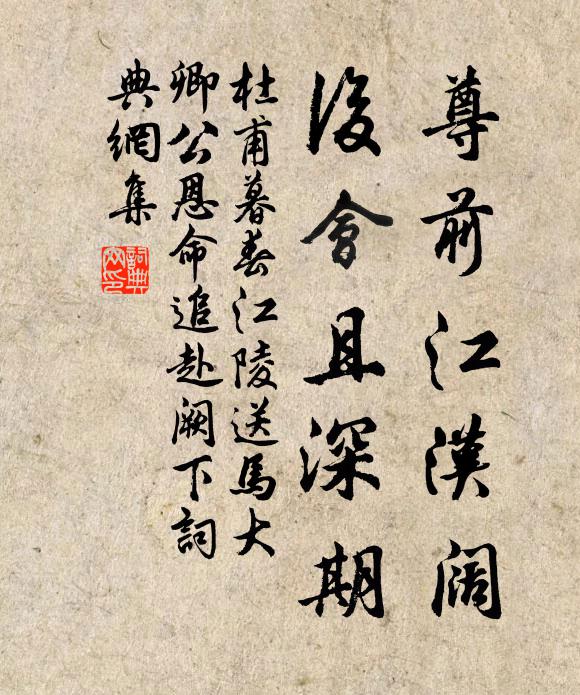 尊前江漢闊
後會且深期
杜甫暮春江陵送馬大
卿公恩命追赴闕下詞
典網集
詞典